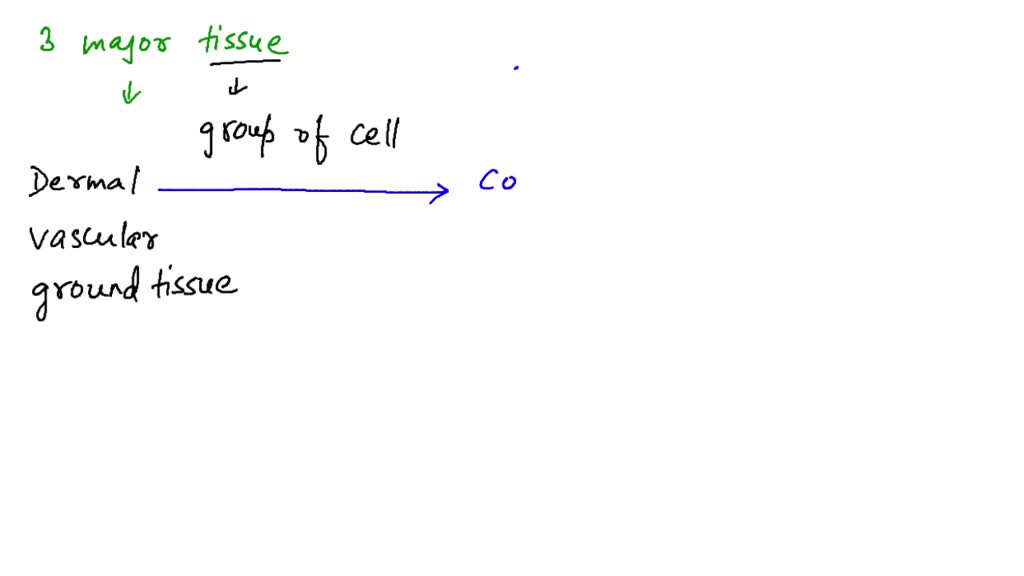 3 major tissue
group of cell
Dermal Co
vascular
ground tissue